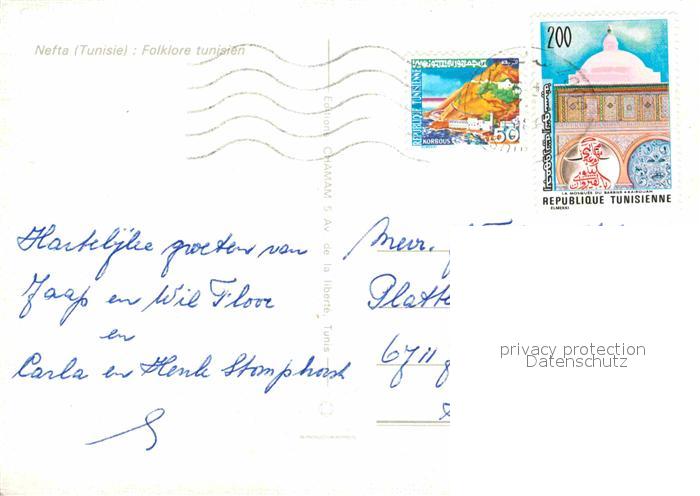 Nefta (Tunisie) : Folklore tunisien
50
REPUBLIQUE TUNISIENNE
KORBOUS
200
LA MOSQUEE DU BARBIER - KAIROUAN
REPUBLIQUE TUNISIENNE
ELMEKKI
Editions CHAMAM 5 Av. de la liberté, Tunis
Hartelijke groeten van
Jaap en Wil Floor
en
Carla en Henk Stomphorst
Mevr.
Platte
6711
privacy protection
Datenschutz